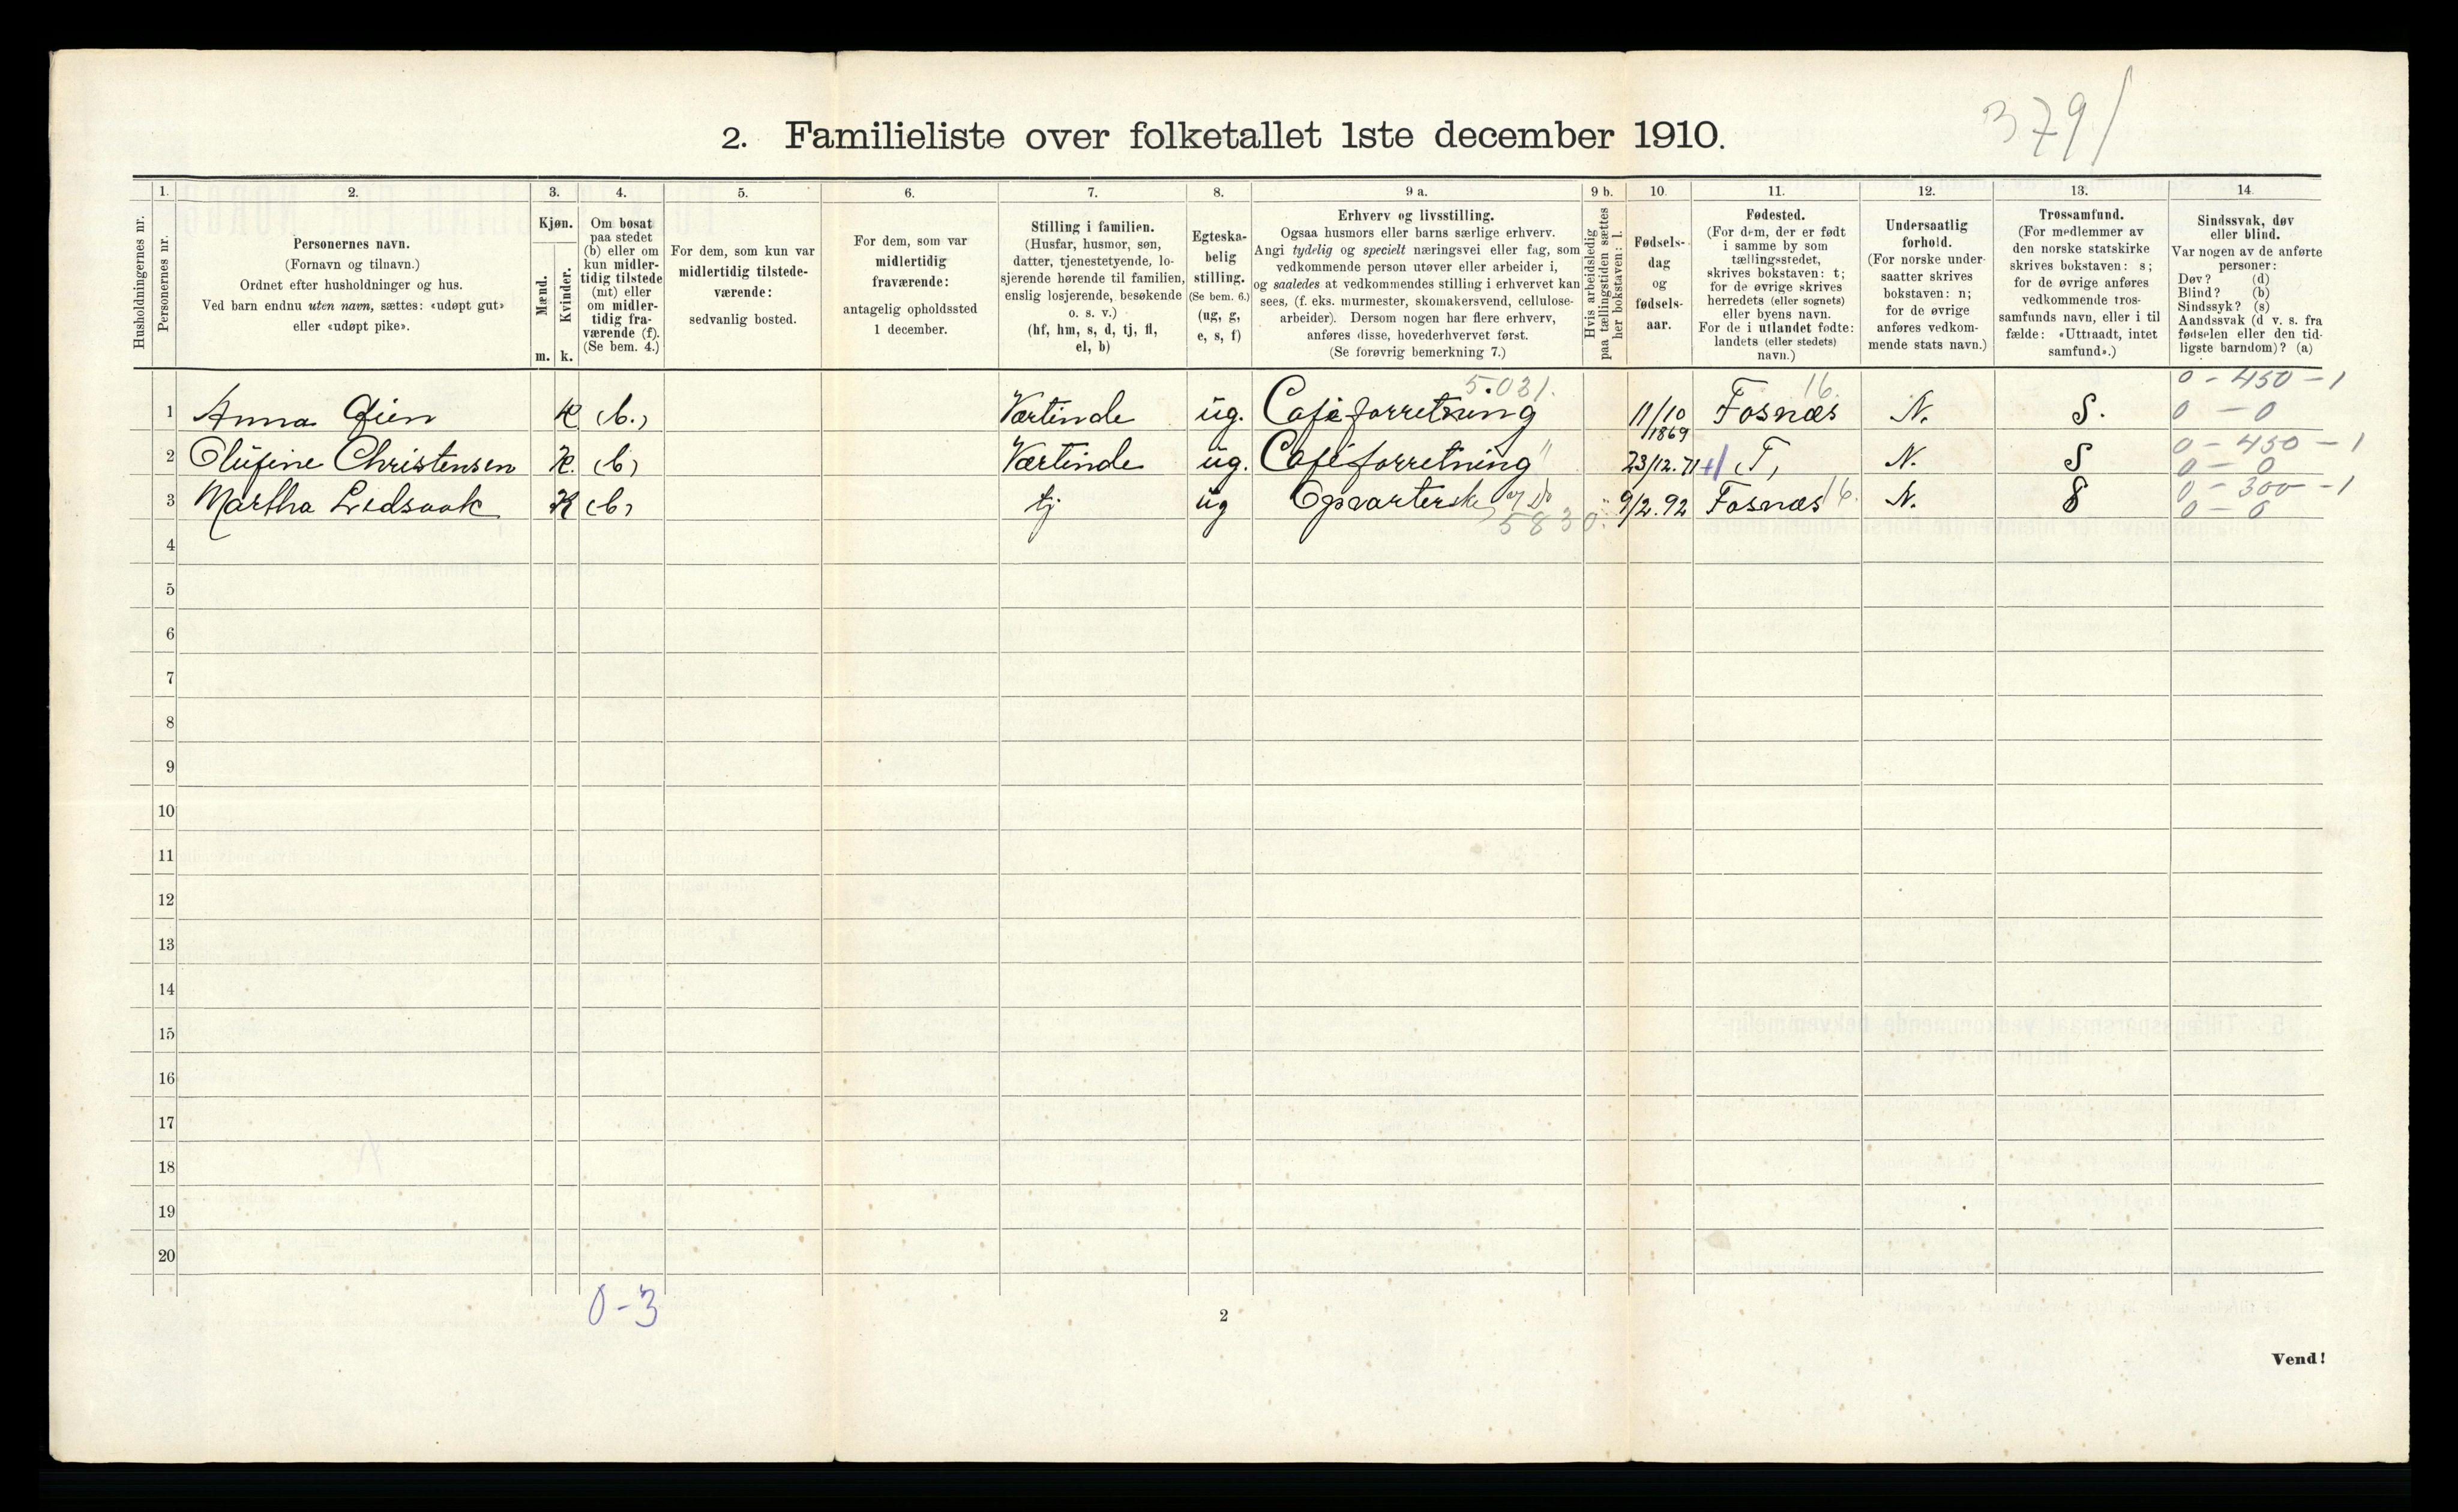 3791
2. Familieliste over folketallet 1ste december 1910.
1. 2. 3. 4. 5. 6. 7. 8. 9 a. 9 b. 10. 11. 12. 13. 14
Husholdningernes nr.
Personernes nr.
Personernes navn.
(Fornavn og tilnavn.)
Ordnet efter husholdninger og hus.
Ved barn endnu uten navn, sættes: «udøpt gut»
eller «udøpt pike».
Kjøn.
Mænd.
Kvinder.
m. k.
Om bosat
paa stedet
(b) eller om
kun midler-
tidig tilstede
(mt) eller
om midler-
tidig fra-
værende (f).
(Se bem. 4.)
For dem, som kun var
midlertidig tilstede-
værende:
sedvanlig bosted.
For dem, som var
midlertidig
fraværende:
antagelig opholdssted
1 december.
Stilling i familien.
(Husfar, husmor, søn,
datter, tjenestetyende, lo-
sjerende hørende til familien,
enslig losjerende, besøkende
o. s. v.)
(hf, hm, s, d, tj, fl,
el, b)
Egteska-
belig
stilling.
(Se bem. 6.)
(ug, g,
e, s, f)
Erhverv og livsstilling.
Ogsaa husmors eller barns særlige erhverv.
Angi tydelig og specielt næringsvei eller fag, som
vedkommende person utøver eller arbeider i,
og saaledes at vedkommendes stilling i erhvervet kan
sees, (f. eks. murmester, skomakersvend, cellulose-
arbeider). Dersom nogen har flere erhverv,
anføres disse, hovederhvervet først.
(Se forøvrig bemerkning 7.)
Hvis arbeidsledig
paa tællingstiden sættes
her bokstaven: l.
Fødsels-
dag
og
fødsels-
aar.
Fødested.
(For dem, der er født
i samme by som
tællingsstedet,
skrives bokstaven: t;
for de øvrige skrives
herredets (eller sognets)
eller byens navn.
For de i utlandet fødte:
landets (eller stedets)
navn.)
Undersaatlig
forhold.
(For norske under-
saatter skrives
bokstaven: n;
for de øvrige
anføres vedkom-
mende stats navn.)
Trossamfund.
(For medlemmer av
den norske statskirke
skrives bokstaven: s;
for de øvrige anføres
vedkommende tros-
samfunds navn, eller i til
fælde: «Uttraadt, intet
samfund».)
Sindssvak, døv
eller blind.
Var nogen av de anførte
personer:
Døv? (d)
Blind? (b)
Sindssyk? (s)
Aandssvak (d v. s. fra
fødselen eller den tid-
ligste barndom)? (a)
5.031. 16. 0 - 450 - 1
1 Anna Øien K (b.) Værtinde ug. Caféforretning 11/10 1869 Fosnæs N. S. 0 - 0
0 - 450 - 1
2 Olufine Christensen K. (b) Værtinde ug. Caféforretning " 23/12.71 T, N. S 0 - 0
3 Martha Ledsaak K (b) tj ug Opvarterske 9/2.92 Fosnæs 16. N. S 0 - 300 - 1
5830. 0 - 0
4
5
6
7
8
9
10
11
12
13
14
15
16
17
18
19
20
0 - 3
2
Vend!